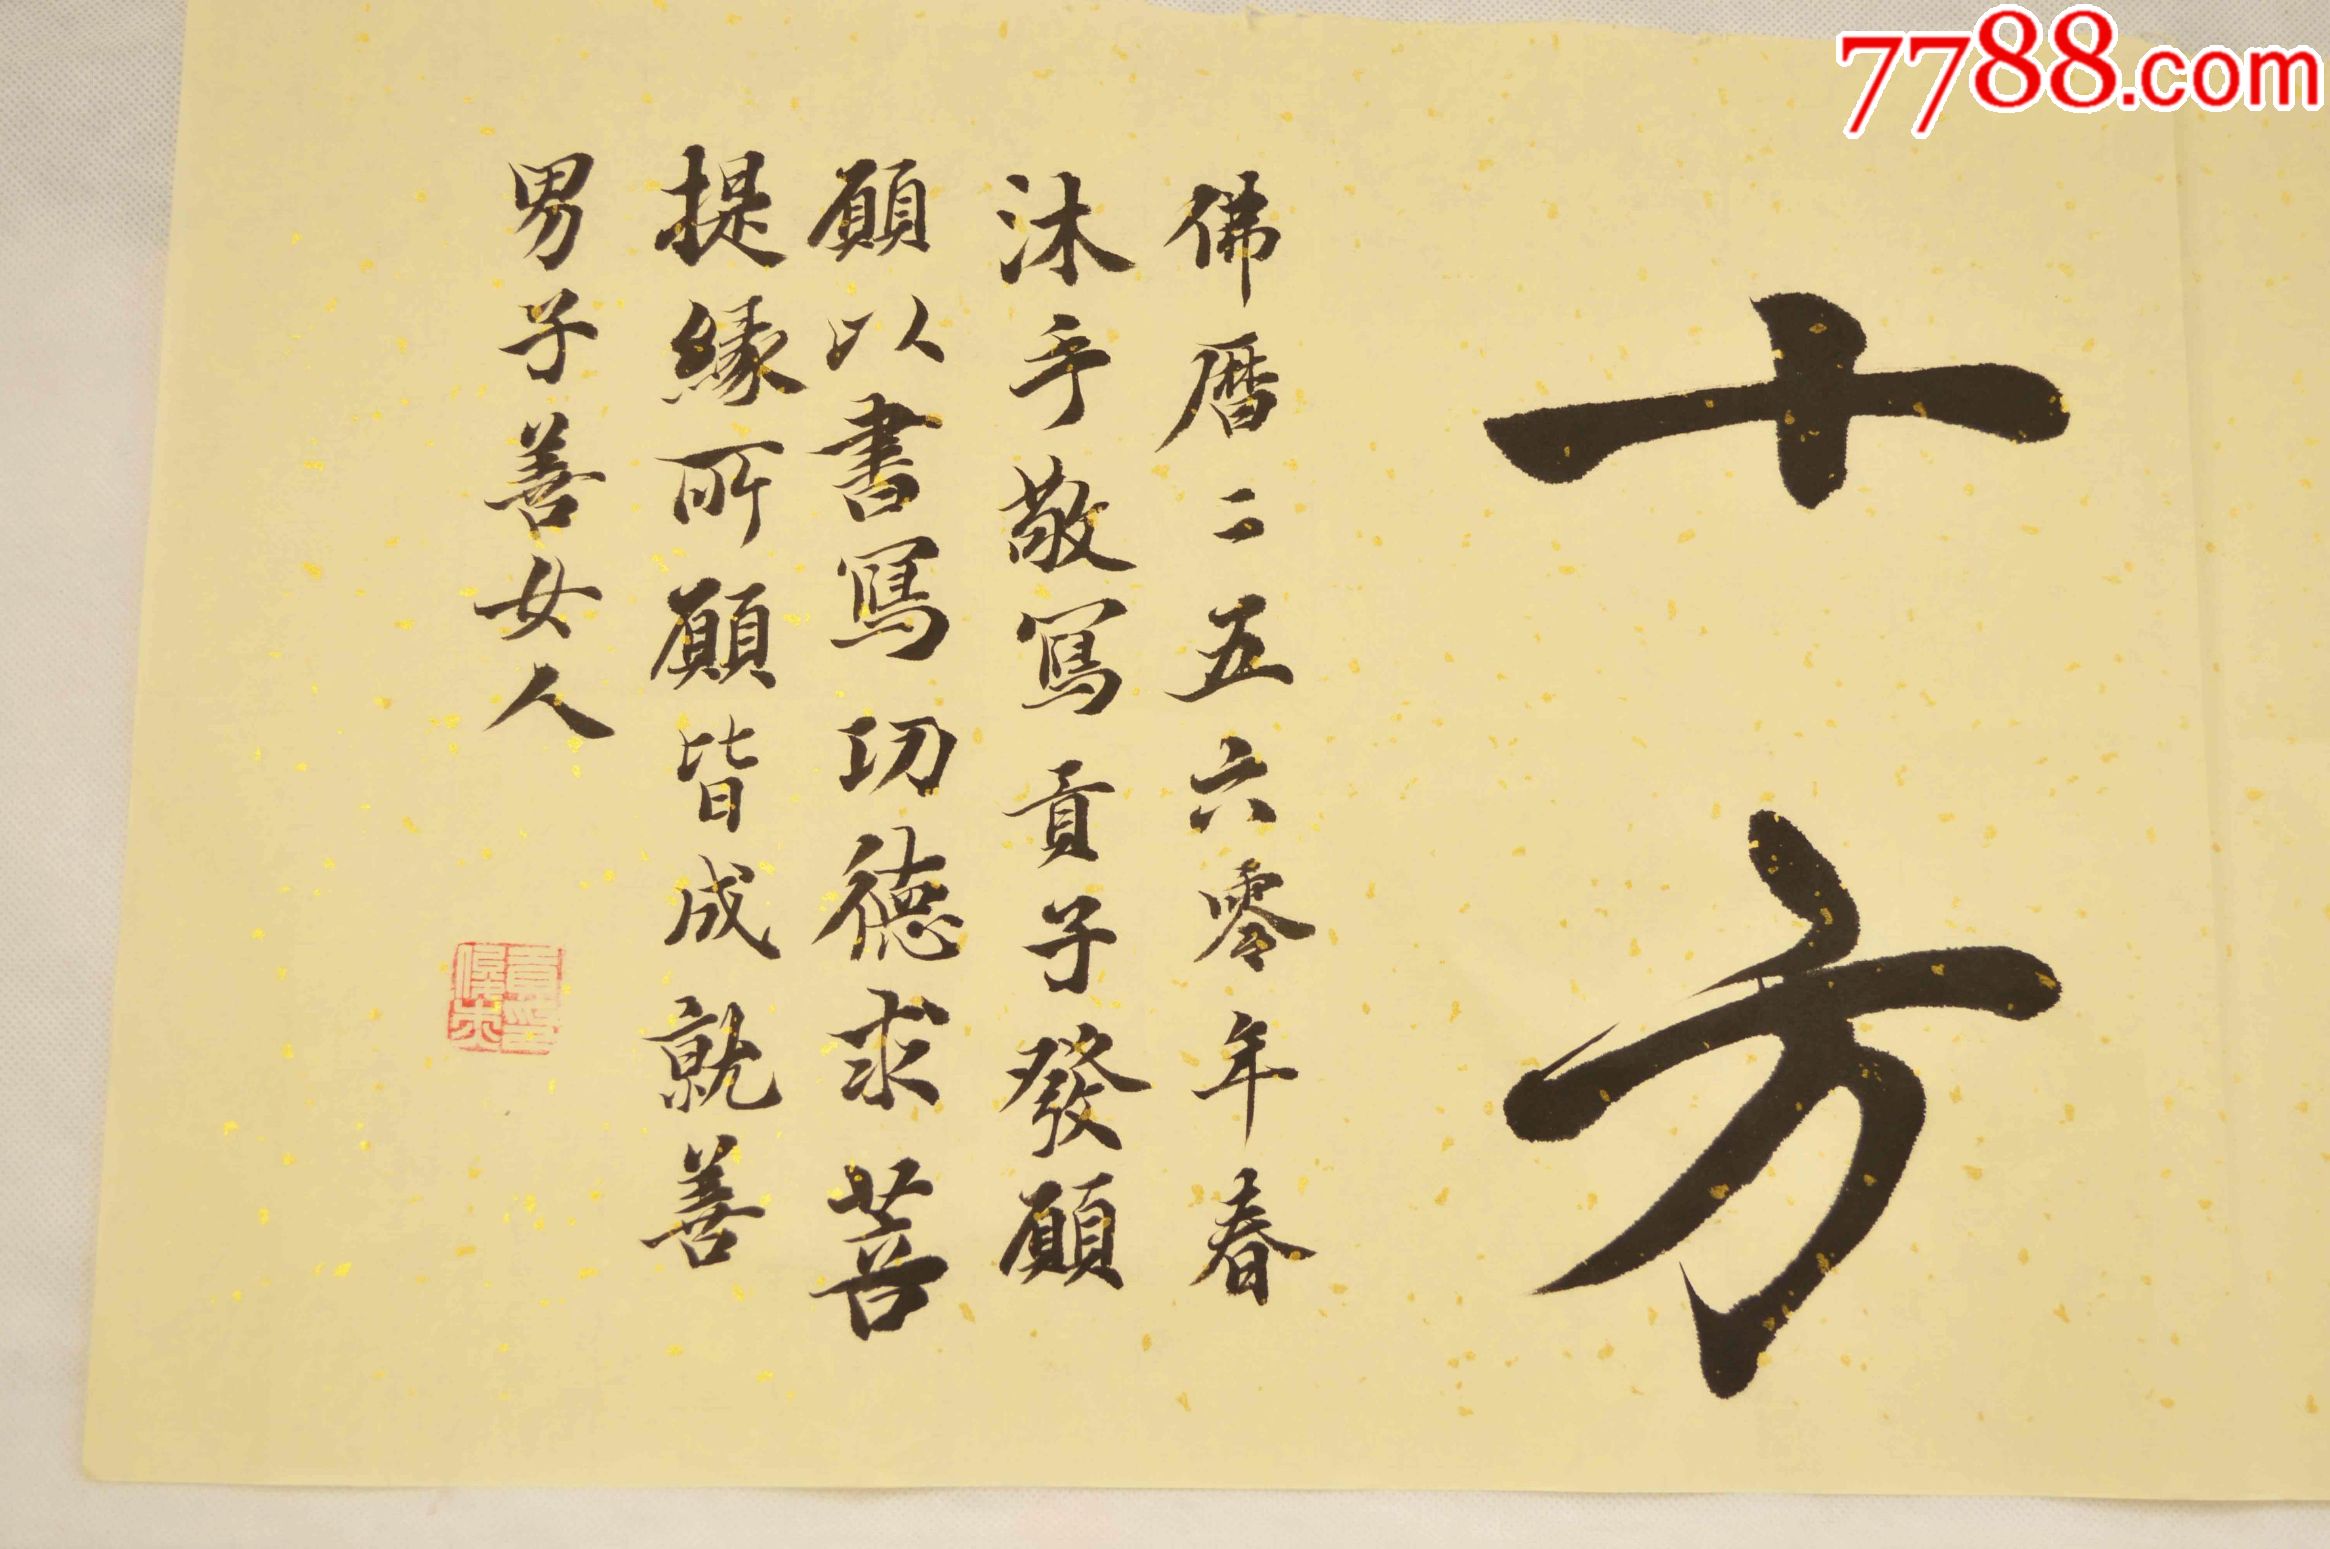 7788.com
十方
佛曆二五六零年春
沐手敬寫貢子發願
願以書寫功德求菩
提緣所願皆成就善
男子善女人